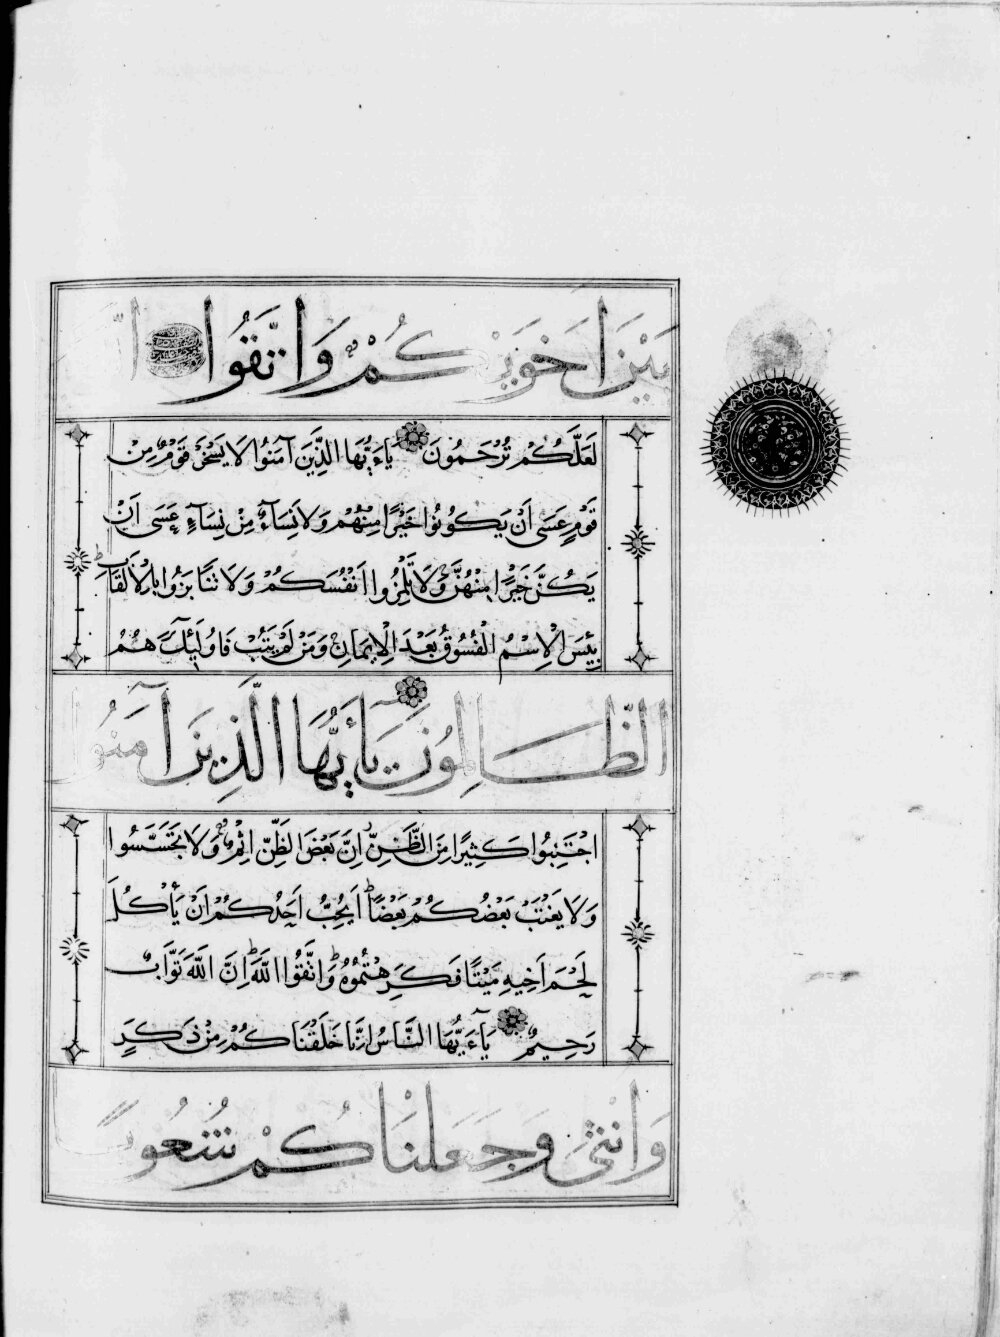 بَيْنَ اَخَوَيْكُمْ وَاتَّقُوا
لَعَلَّكُمْ تُرْحَمُونَ يَاءَيُّهَا الَّذِينَ آمَنُوا لَا يَسْخَرْ قَوْمٌ مِنْ
قَوْمٍ عَسَى اَنْ يَكُونُوا خَيْرًا مِنْهُمْ وَلَا نِسَآءٌ مِنْ نِسَآءٍ عَسَى اَنْ
يَكُنَّ خَيْرًا مِنْهُنَّ وَلَا تَلْمِزُوا اَنْفُسَكُمْ وَلَا تَنَابَزُوا بِالْاَلْقَابِ
بِئْسَ الْاِسْمُ الْفُسُوقُ بَعْدَ الْاِيمَانِ وَمَنْ لَمْ يَتُبْ فَاُولَئِكَ هُمُ
الظَّالِمُونَ يَآءَيُّهَا الَّذِينَ آمَنُوا
اجْتَنِبُوا كَثِيرًا مِنَ الظَّنِّ اِنَّ بَعْضَ الظَّنِّ اِثْمٌ وَلَا تَجَسَّسُوا
وَلَا يَغْتَبْ بَعْضُكُمْ بَعْضًا اَيُحِبُّ اَحَدُكُمْ اَنْ يَأْكُلَ
لَحْمَ اَخِيهِ مَيْتًا فَكَرِهْتُمُوهُ وَاتَّقُوا اللَّهَ اِنَّ اللَّهَ تَوَّابٌ
رَحِيمٌ يَآءَيُّهَا النَّاسُ اِنَّا خَلَقْنَاكُمْ مِنْ ذَكَرٍ
وَاُنْثَى وَجَعَلْنَاكُمْ شُعُوبًا